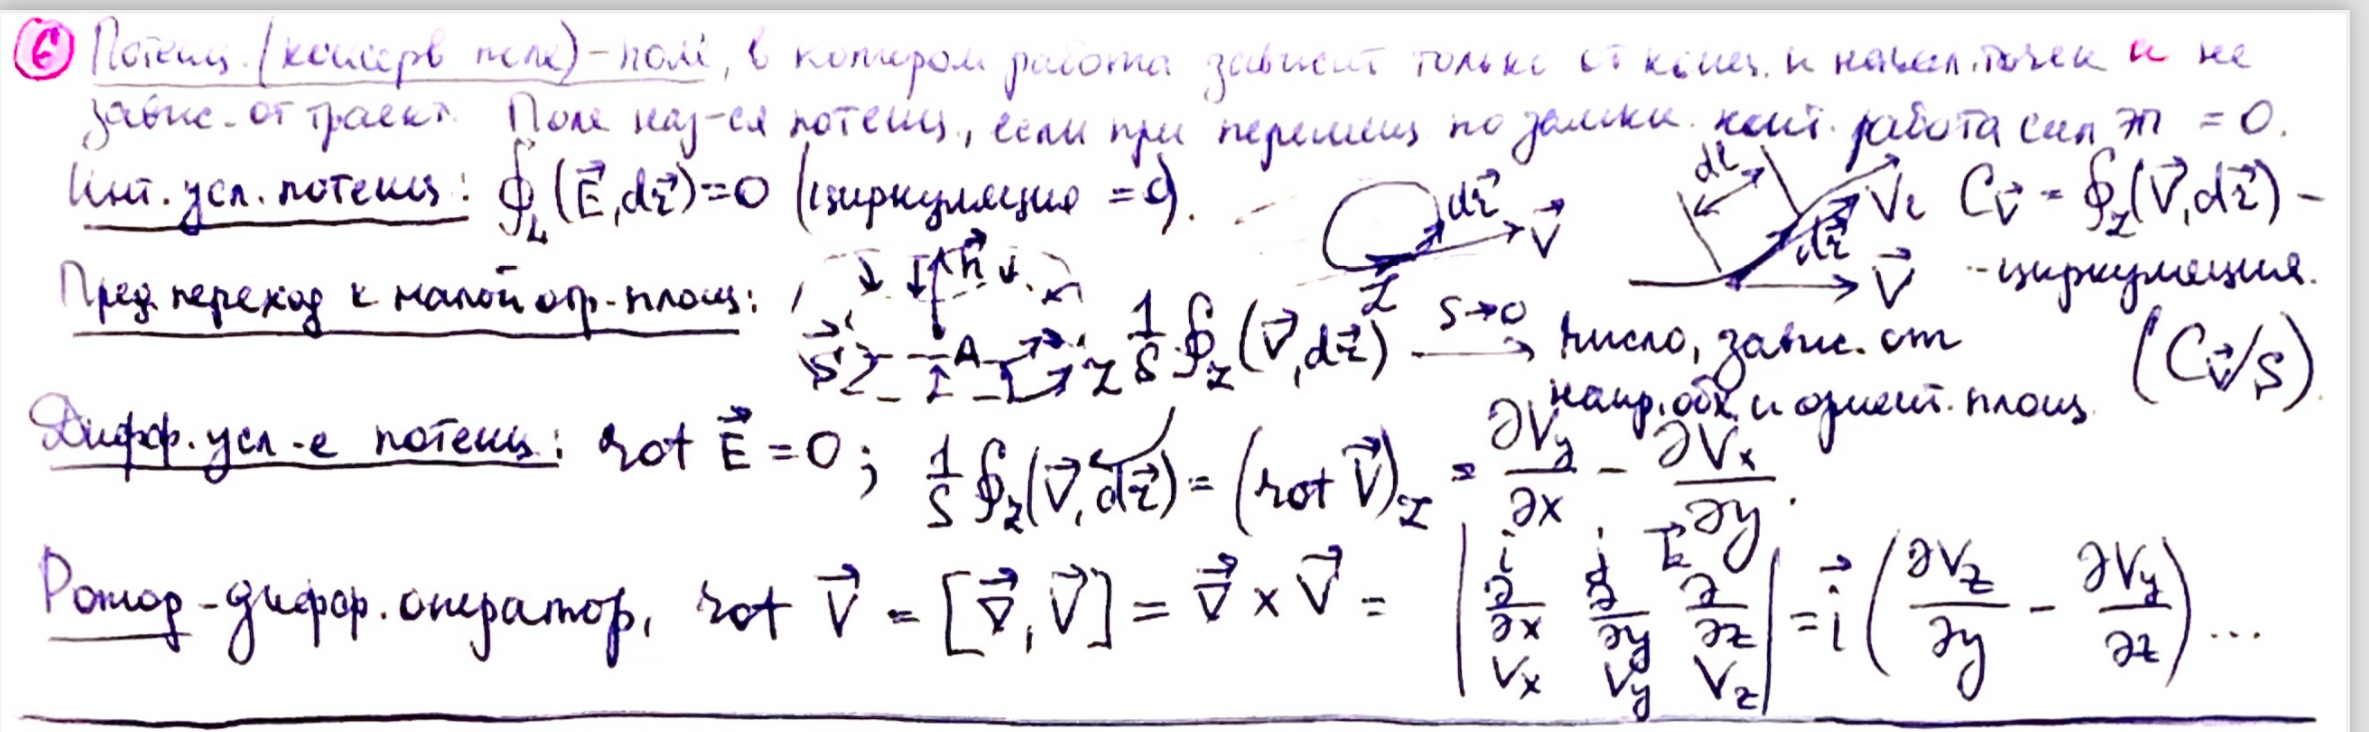 6 Потенц. (консерв поле) – поле, в котором работа зависит только от конеч. и начал. точек и не
завис. от траект. Поле наз-ся потенц., если при перемещ по замкн. конт. работа сил ЭП = 0.
Инт. усл. потенц: ∮_L (E⃗, dr⃗) = 0 (циркуляция = 0). dr⃗ V⃗ L dl V_l dr⃗ V⃗ C_V⃗ = ∮_L (V⃗, dr⃗) –
– циркуляция.
Пред. переход к малой огр. площ: n⃗ S⃗ A L 1/S ∮_L (V⃗, dr⃗) S→0 → число, завис. от
напр. обх. и ориент. площ. (C_V⃗/S).
Дифф. усл-е потенц: rot E⃗ = 0; 1/S ∮_L (V⃗, dr⃗) = (rot V⃗)_z = ∂V_y/∂x − ∂V_x/∂y.
Ротор – дифф. оператор, rot V⃗ = [∇⃗, V⃗] = ∇⃗ × V⃗ = | i j k⃗ ; ∂/∂x ∂/∂y ∂/∂z ; V_x V_y V_z | = i⃗ (∂V_z/∂y − ∂V_y/∂z) ...